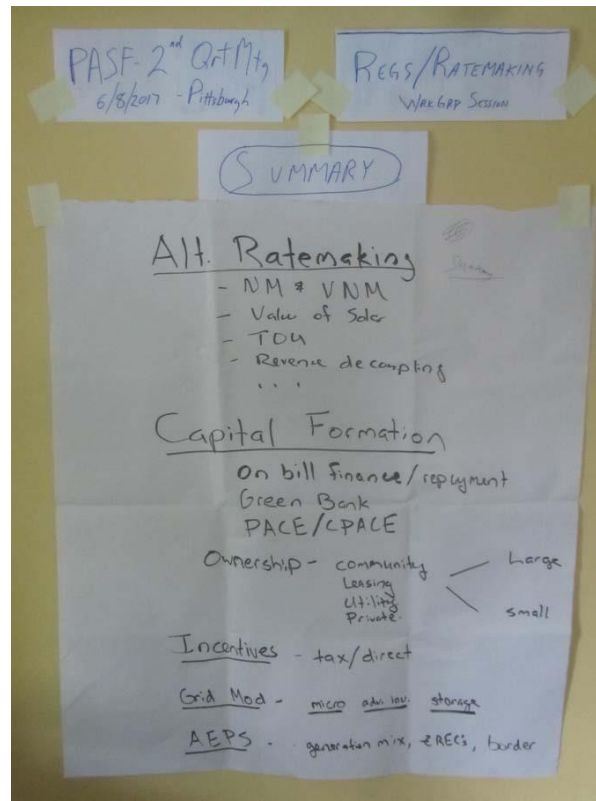 PASF - 2nd Qrt Mtg
6/8/2017 - Pittsburgh
REGS/RATEMAKING
WRKGRP SESSION
SUMMARY
Alt. Ratemaking
- NM & VNM
- Value of Solar
- TOU
- Revenue decoupling
...
Capital Formation
On bill finance/repayment
Green Bank
PACE/CPACE
Ownership - community
Leasing
Utility
Private.
Large
small
Incentives - tax/direct
Grid Mod - micro adv. inv. storage
AEPS - generation mix, REC's, border